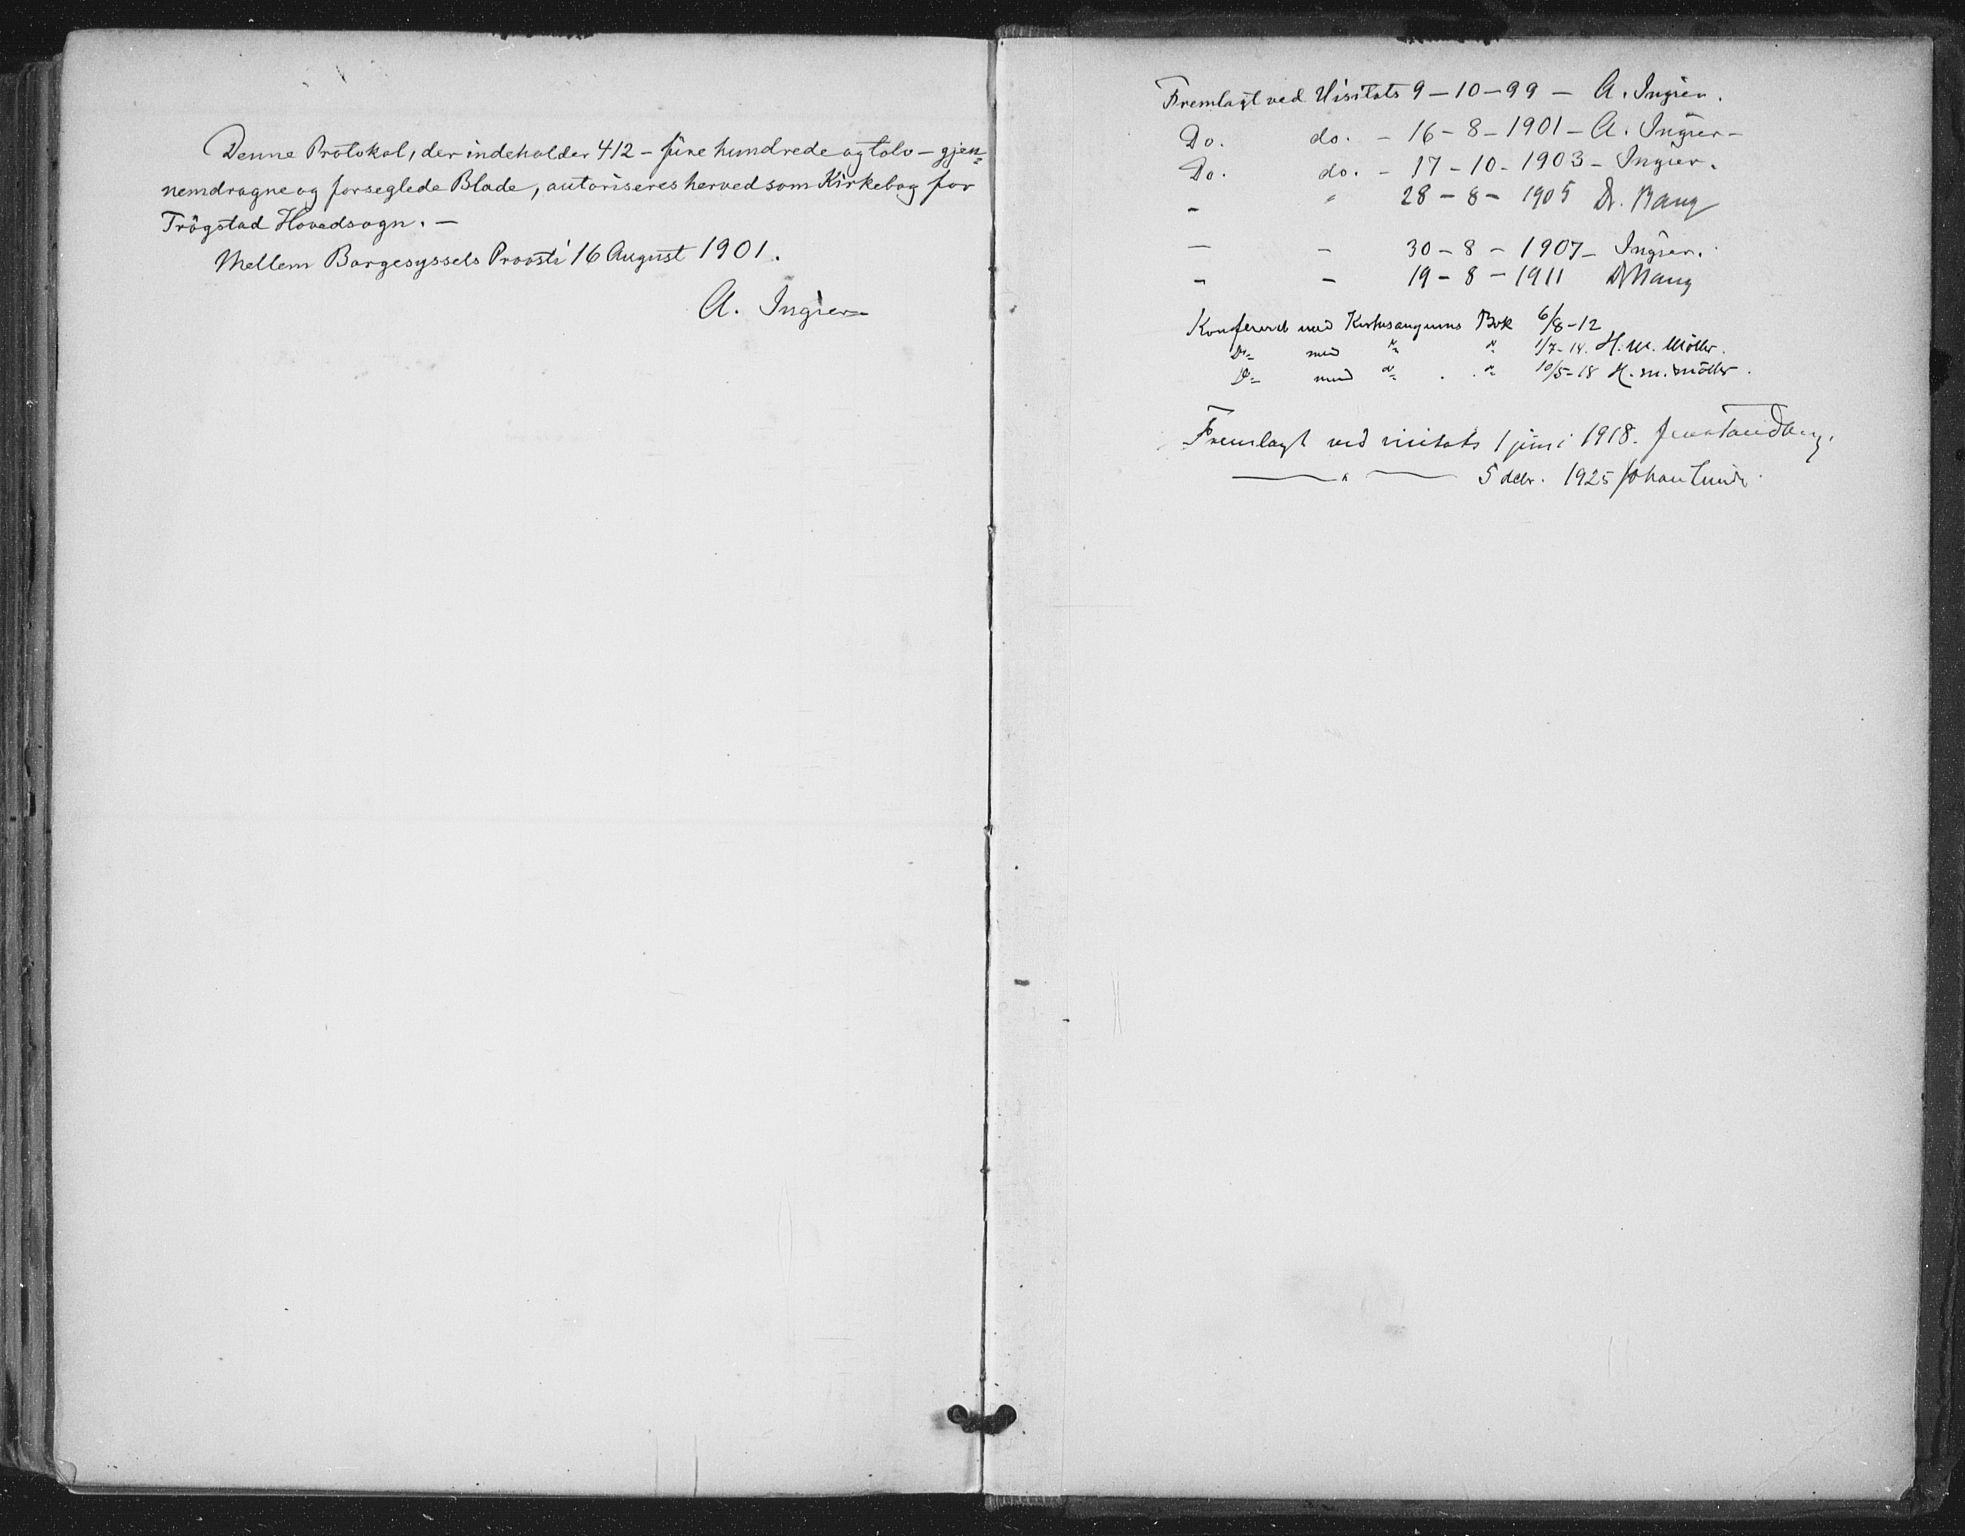 Denne Protokol, der indeholder 412 - fire hundrede og tolv - gjen-
nemdragne og forseglede Blade, autoriseres herved som Kirkebog for
Trögstad Hovedsogn. -
Mellem Borgesyssels Provsti 16 August 1901.
A. Ingier
Fremlagt ved Visitats 9 - 10 - 99 - A. Ingier.
Do. do. - 16 - 8 - 1901 - A. Ingier -
Do. do. - 17 - 10 - 1903 - Ingier.
- " 28 - 8 - 1905 Dr. Bang
- - 30 - 8 - 1907 - Ingier.
- - 19 - 8 - 1911 Dr Bang
Konfereret med Kirkesangerens Bok 6/8-12
Do med do do 1/7-14. H. M. Möller.
Do med do do 10/5-18 H. M. Möller.
Fremlagt ved visitats 1 juni 1918. Jens Tandberg.
— " — 5 debr. 1925 Johan Lunde